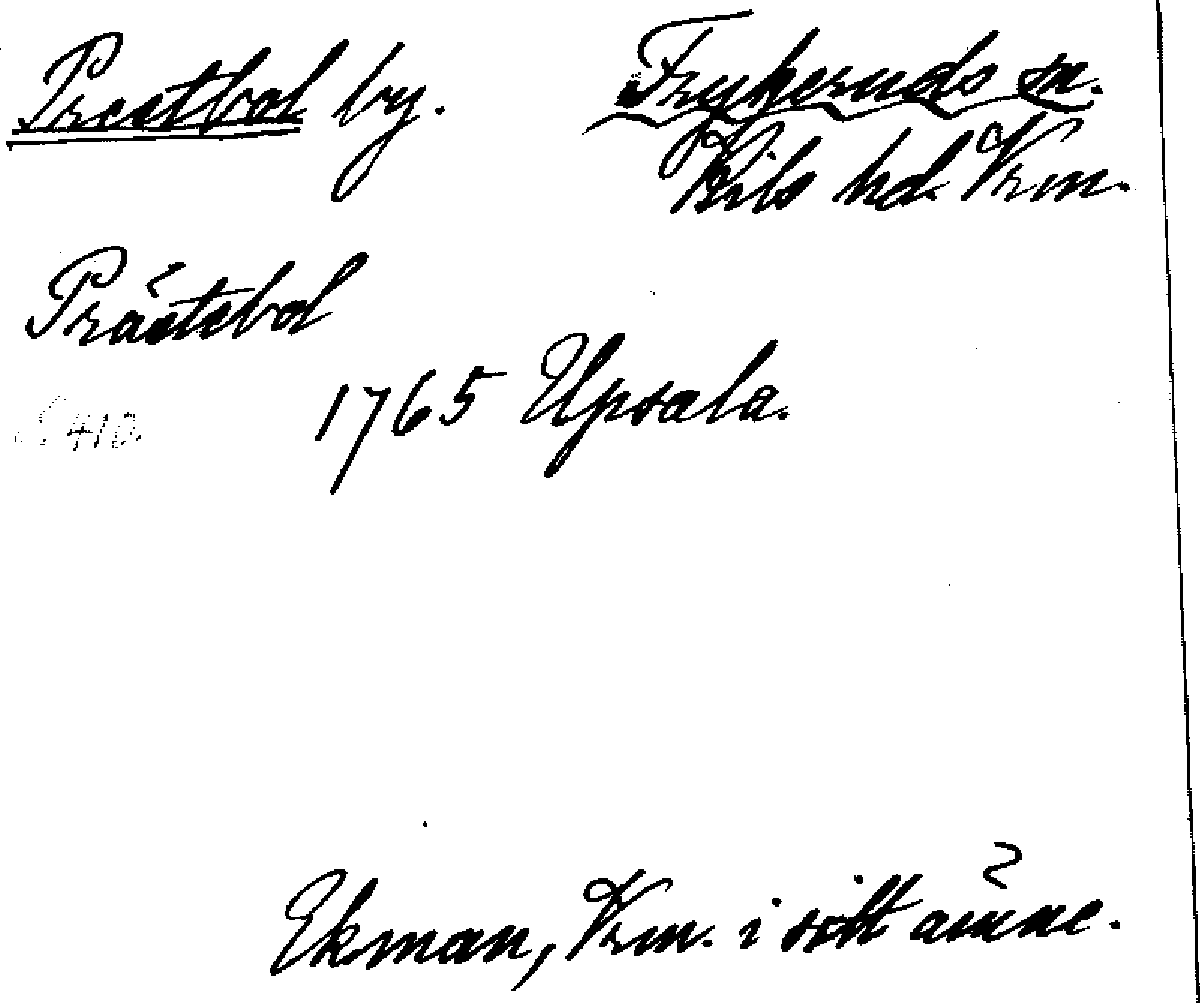 Prestbol by. Frykeruds sn.
Kils hd. Vrm.
Prästebol
1765 Upsala.
S. 410.
Ekman, Vrm. i sitt ämne.